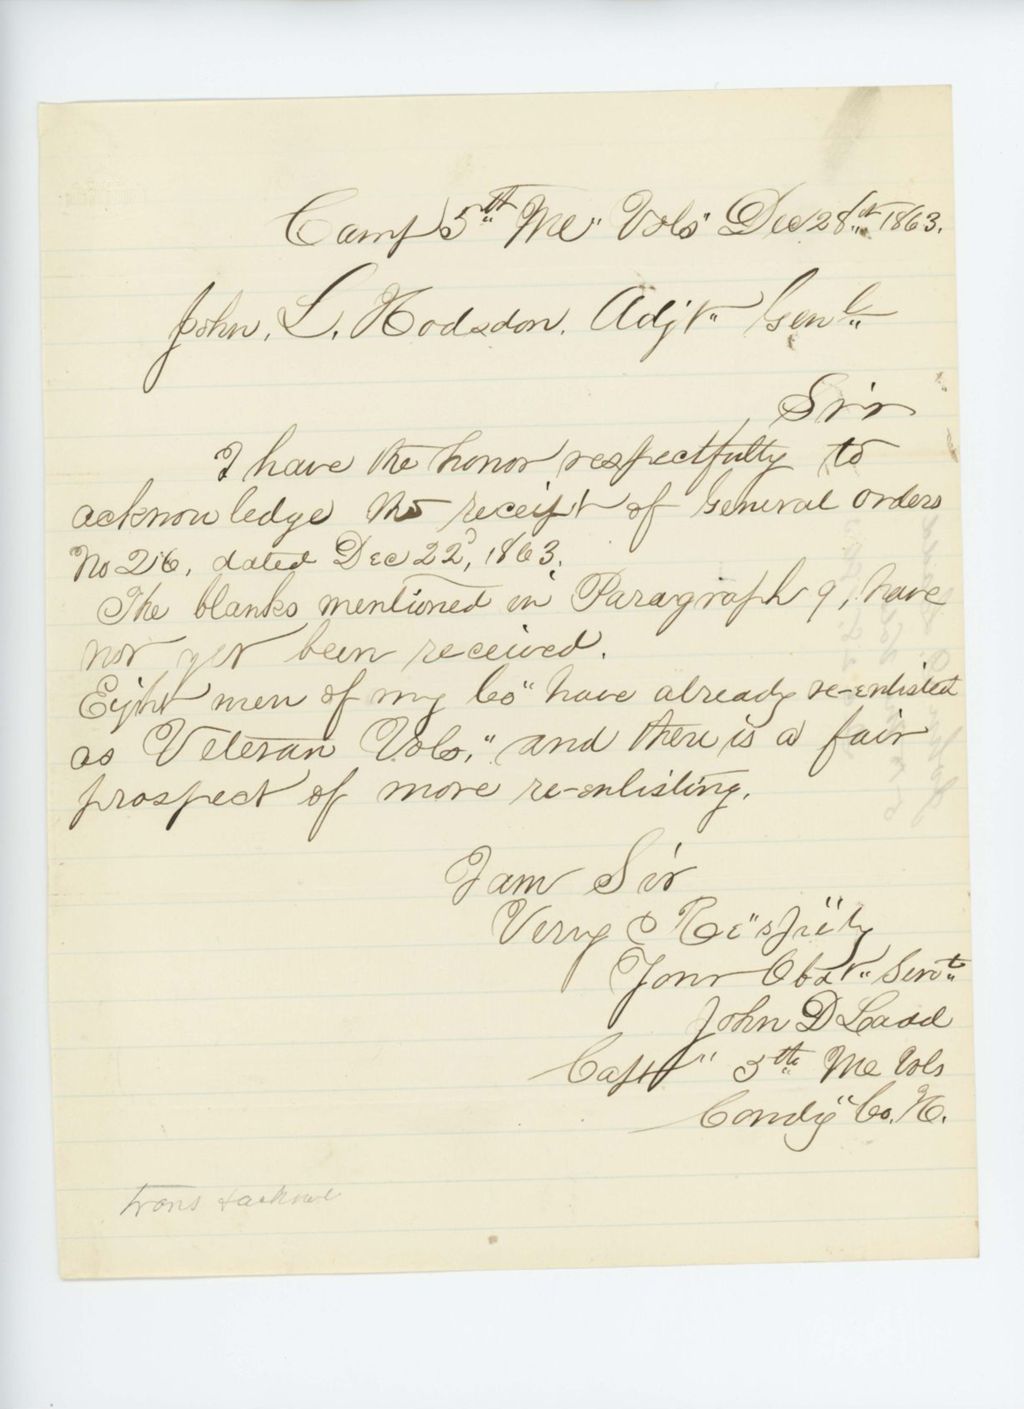 Camp 5th Me" Vols" Dec 28th 1863.
John. L. Hodsdon. Adjt" Genl"
Sir
I have the honor respectfully to
acknowledge the receipt of General Orders
No 26, dated Dec 22d, 1863.
The blanks mentioned in Paragraph 9, have
not yet been received.
Eight men of my Co" have already re-enlisted
as Veteran Vols," and there is a fair
prospect of more re-enlisting.
I am Sir
Very Re"sf"ly
Your Obdt" Servt"
John D Ladd
Capt" 5th Me Vols
Comdg" Co. H.
trans